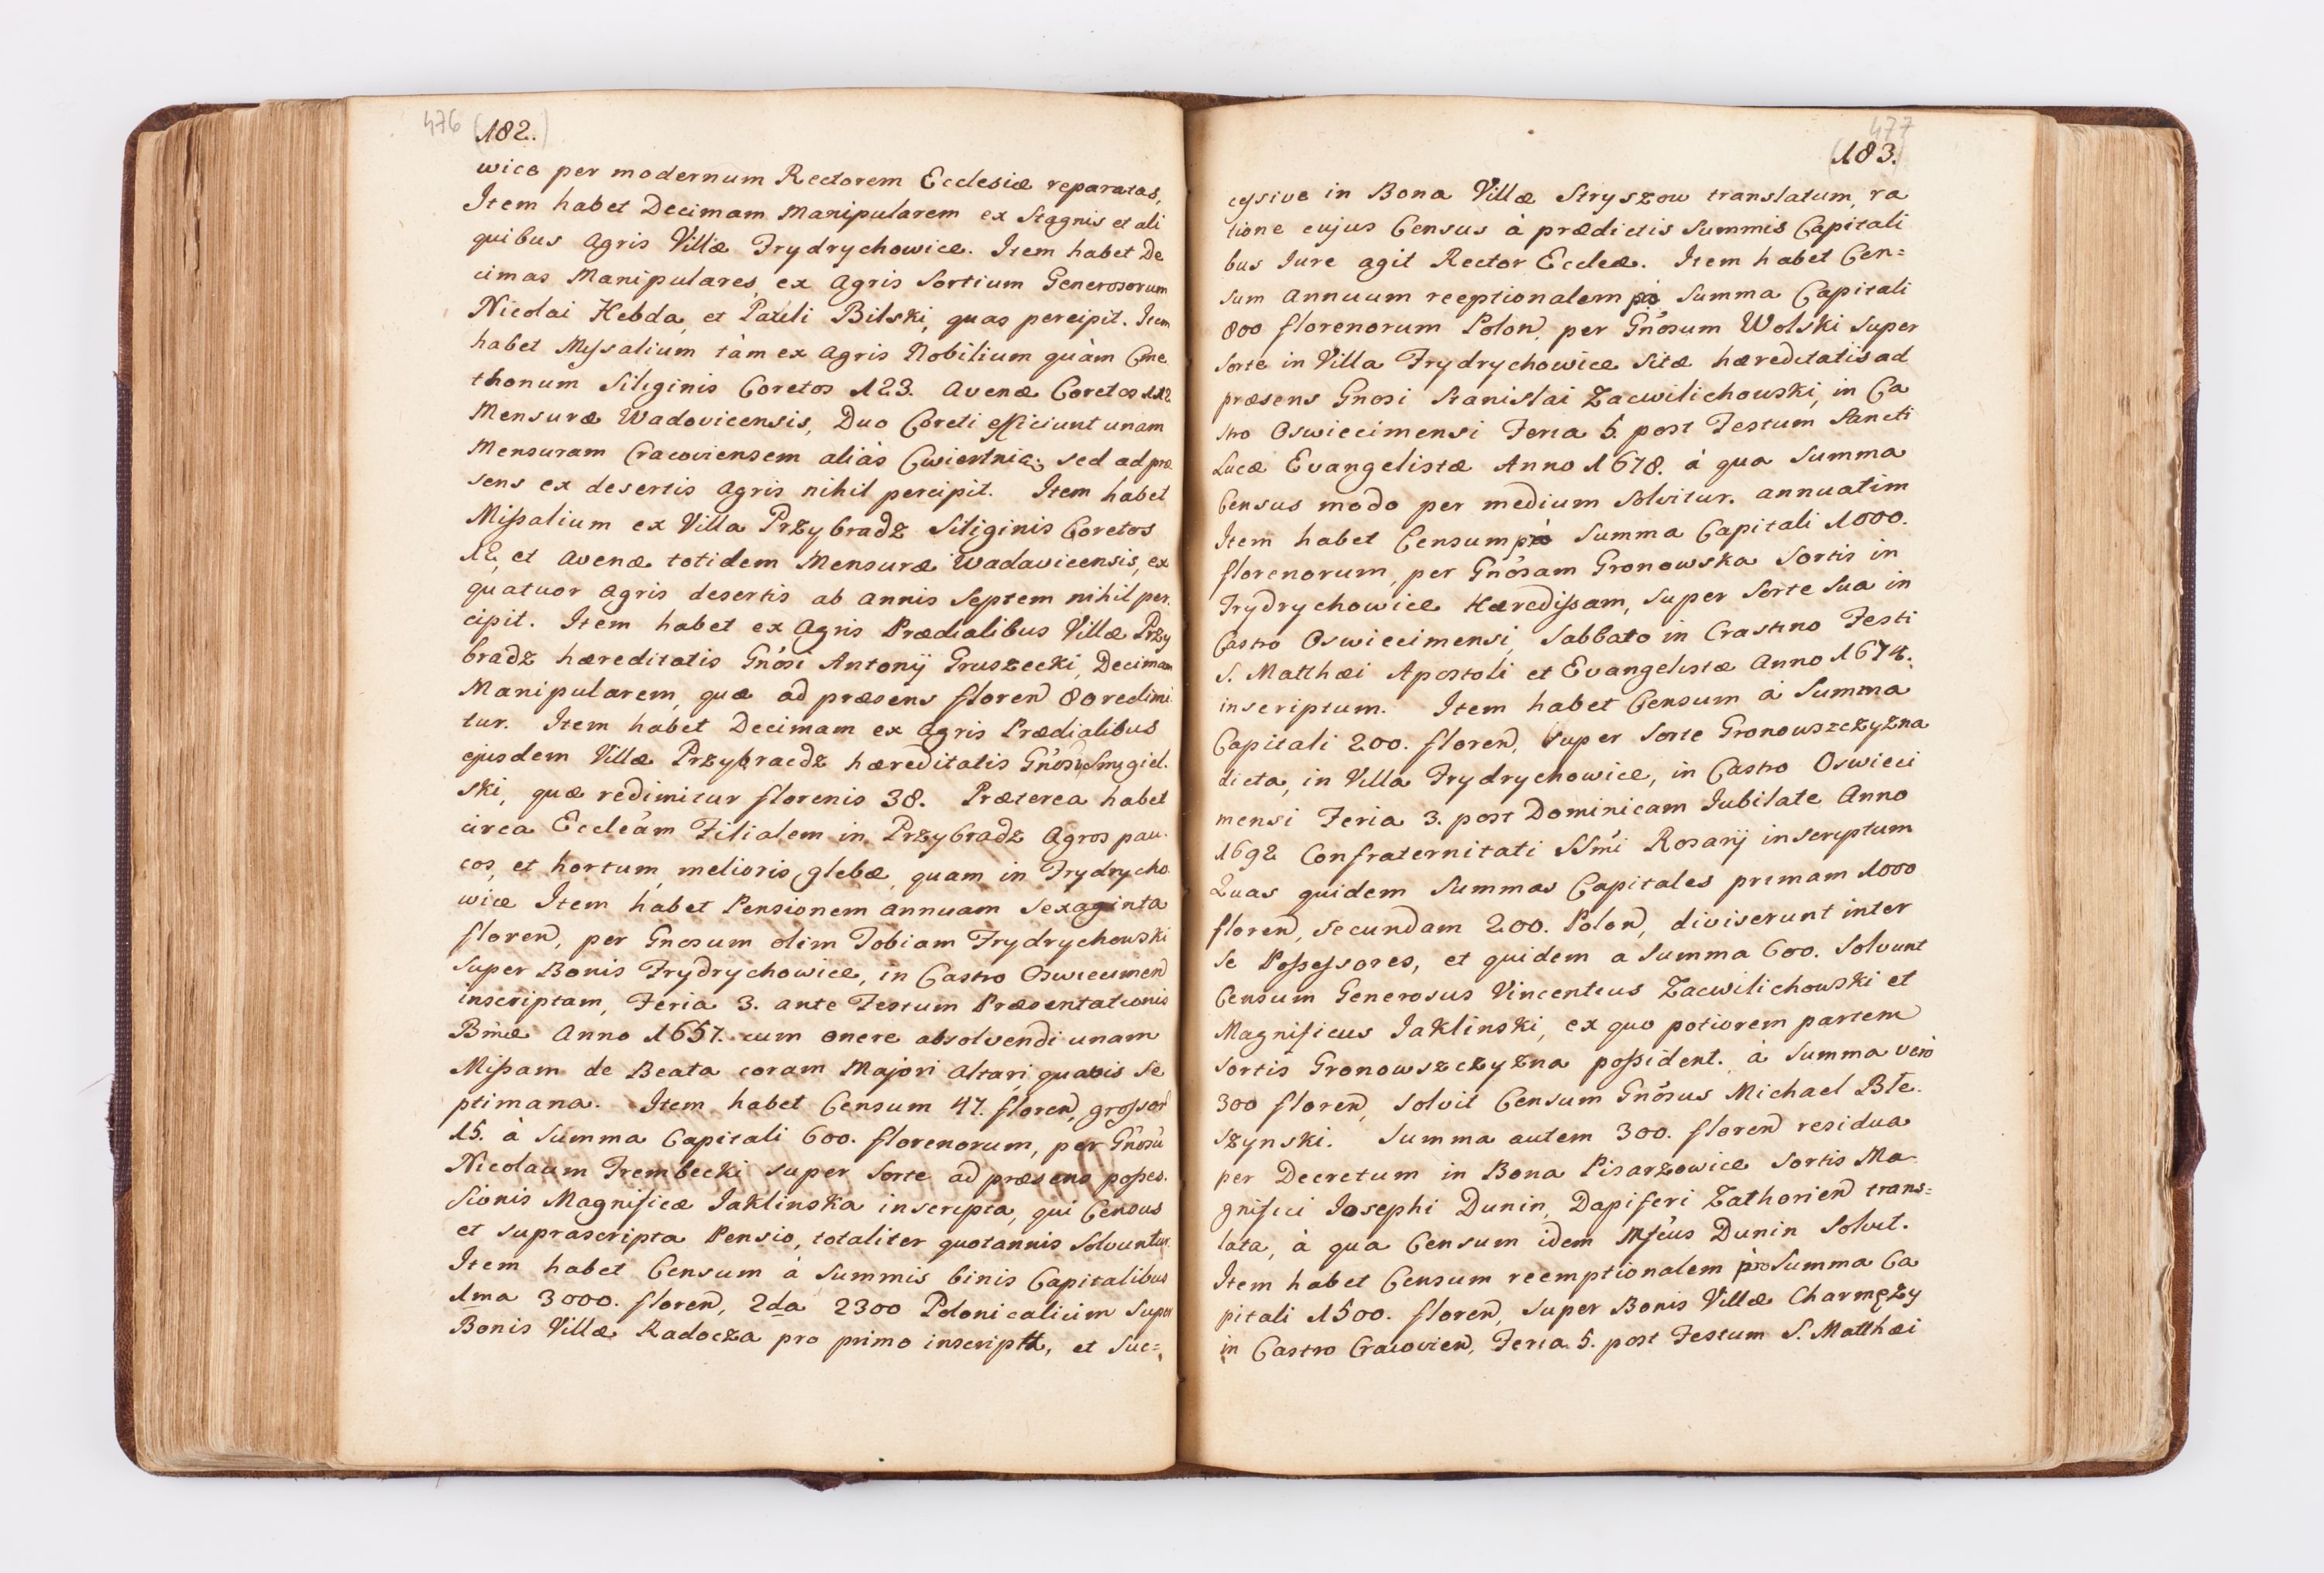 476 (182.)
wice per modernum Rectorem Ecclesiæ reparatas,
Item habet Decimam Manipularem ex Stagnis et ali
quibus Agris Villæ Frydrychowice. Item habet De
cimas Manipulares ex Agris Sortium Generosorum
Nicolai Hebda, et Pauli Bilski, quas percipit. Item
habet Myssalium tàm ex Agris Nobilium quàm Cme
thonum Siliginis Coretos 123. Avenæ Coretos 112
Mensuræ Wadovicensis, Duo Coreti efficiunt unam
Mensuram Cracoviensem aliàs Cwiertnia; sed ad præ
sens ex desertis Agris nihil percipit. Item habet
Missalium ex Villa Przybradz Siliginis Coretos
12, et Avenæ totidem Mensuræ Wadavicensis, ex
quatuor Agris desertis ab Annis Septem nihil per.
cipit. Item habet ex Agris Prædialibus Villæ Przy
bradz hæreditatis Gnosi Antonij Gruszecki, Decimam
Manipularem, quæ ad præsens floren 80 redimi
tur. Item habet Decimam ex Agris Prædialibus
ejusdem Villæ Przybraedz hæreditatis Gnosi Smigiel.
ski, quæ redimitur florenis 38. Præterea habet
circa Eccleam Filialem in Przybradz Agros pau.
cos, et hortum melioris glebæ, quam in Frydrycho
wice Item habet Pensionem annuam sexaginta
floren, per Gnosum olim Tobiam Frydrychowski
super Bonis Frydrychowice, in Castro Oswiecimen
inscriptam, Feria 3. ante Festum Præsentationis
Bmæ Anno 1657. cum onere absolvendi unam
Missam de Beata coram Majori Altari quavis Se
ptimana. Item habet Censum 47. floren, grossor
15. à Summa Capitali 600. florenorum, per Gnosu
Nicolaum Trembecki super Sorte ad præsens posses.
sionis Magnificæ Jaklinska inscripta, qui Census
et suprascripta Pensio, totaliter quotannis Solvuntur.
Item habet Censum à Summis binis Capitalibus
1ma 3000. floren, 2da 2300 Polonicalium Super
Bonis Villæ Radocza pro primo inscriptu, et Suc=
477
(183.)
cessive in Bona Villæ Stryszow translatum, ra
tione cujus Census à prædictis Summis Capitali
bus Jure agit Rector Eccleæ. Item habet Cen=
sum Annuum reeptionalem pò Summa Capitali
800 florenorum Polon, per Gnosum Wolski super
Sorte in Villa Frydrychowice Sitæ hæreditatis ad
præsens Gnosi Stanislai Zacwilichowski, in Ca
stro Oswiecimensi Feria 5. post Festum Sancti
Lucæ Evangelistæ Anno 1678. à qua Summa
Census modo per medium Solvitur. annuatim
Item habet Censum prò Summa Capitali 1000.
florenorum, per Gnosam Gronowska Sortis in
Frydrychowice Hæredissam, super Sorte Sua in
Castro Oswiecimensi, Sabbato in Crastino Festi
S. Matthæi Apostoli et Evangelistæ Anno 1674.
inscriptum. Item habet Censum à Summa
Capitali 200. floren, super Sorte Gronowszczyzna
dicta, in Villa Frydrychowice, in Castro Oswieci
mensi Feria 3. post Dominicam Jubilate Anno
1692 Confraternitati SSmi Rosarij inscriptum
Quas quidem Summas Capitales primam 1000
floren, secundam 200. Polon, diviserunt inter
se Possessores, et quidem a Summa 600. Solvunt
Censum Generosus Vincentius Zacwilichowski et
Magnificus Jaklinski, ex quo potiorem partem
Sortis Gronowszczyzna possident. à Summa verò
300 floren, Solvit Censum Gnosus Michael Ble.
szynski. Summa autem 300. floren residua
per Decretum in Bona Pisarzowice Sortis Ma
gnifici Josephi Dunin, Dapiferi Zathorien trans=
lata, à qua Censum idem Mfcus Dunin Solvit.
Item habet Censum reemptionalem prò Summa Ca
pitali 1500. floren, Super Bonis Villæ Charmęzy
in Castro Cracovien, Feria 5. post Festum S. Matthæi